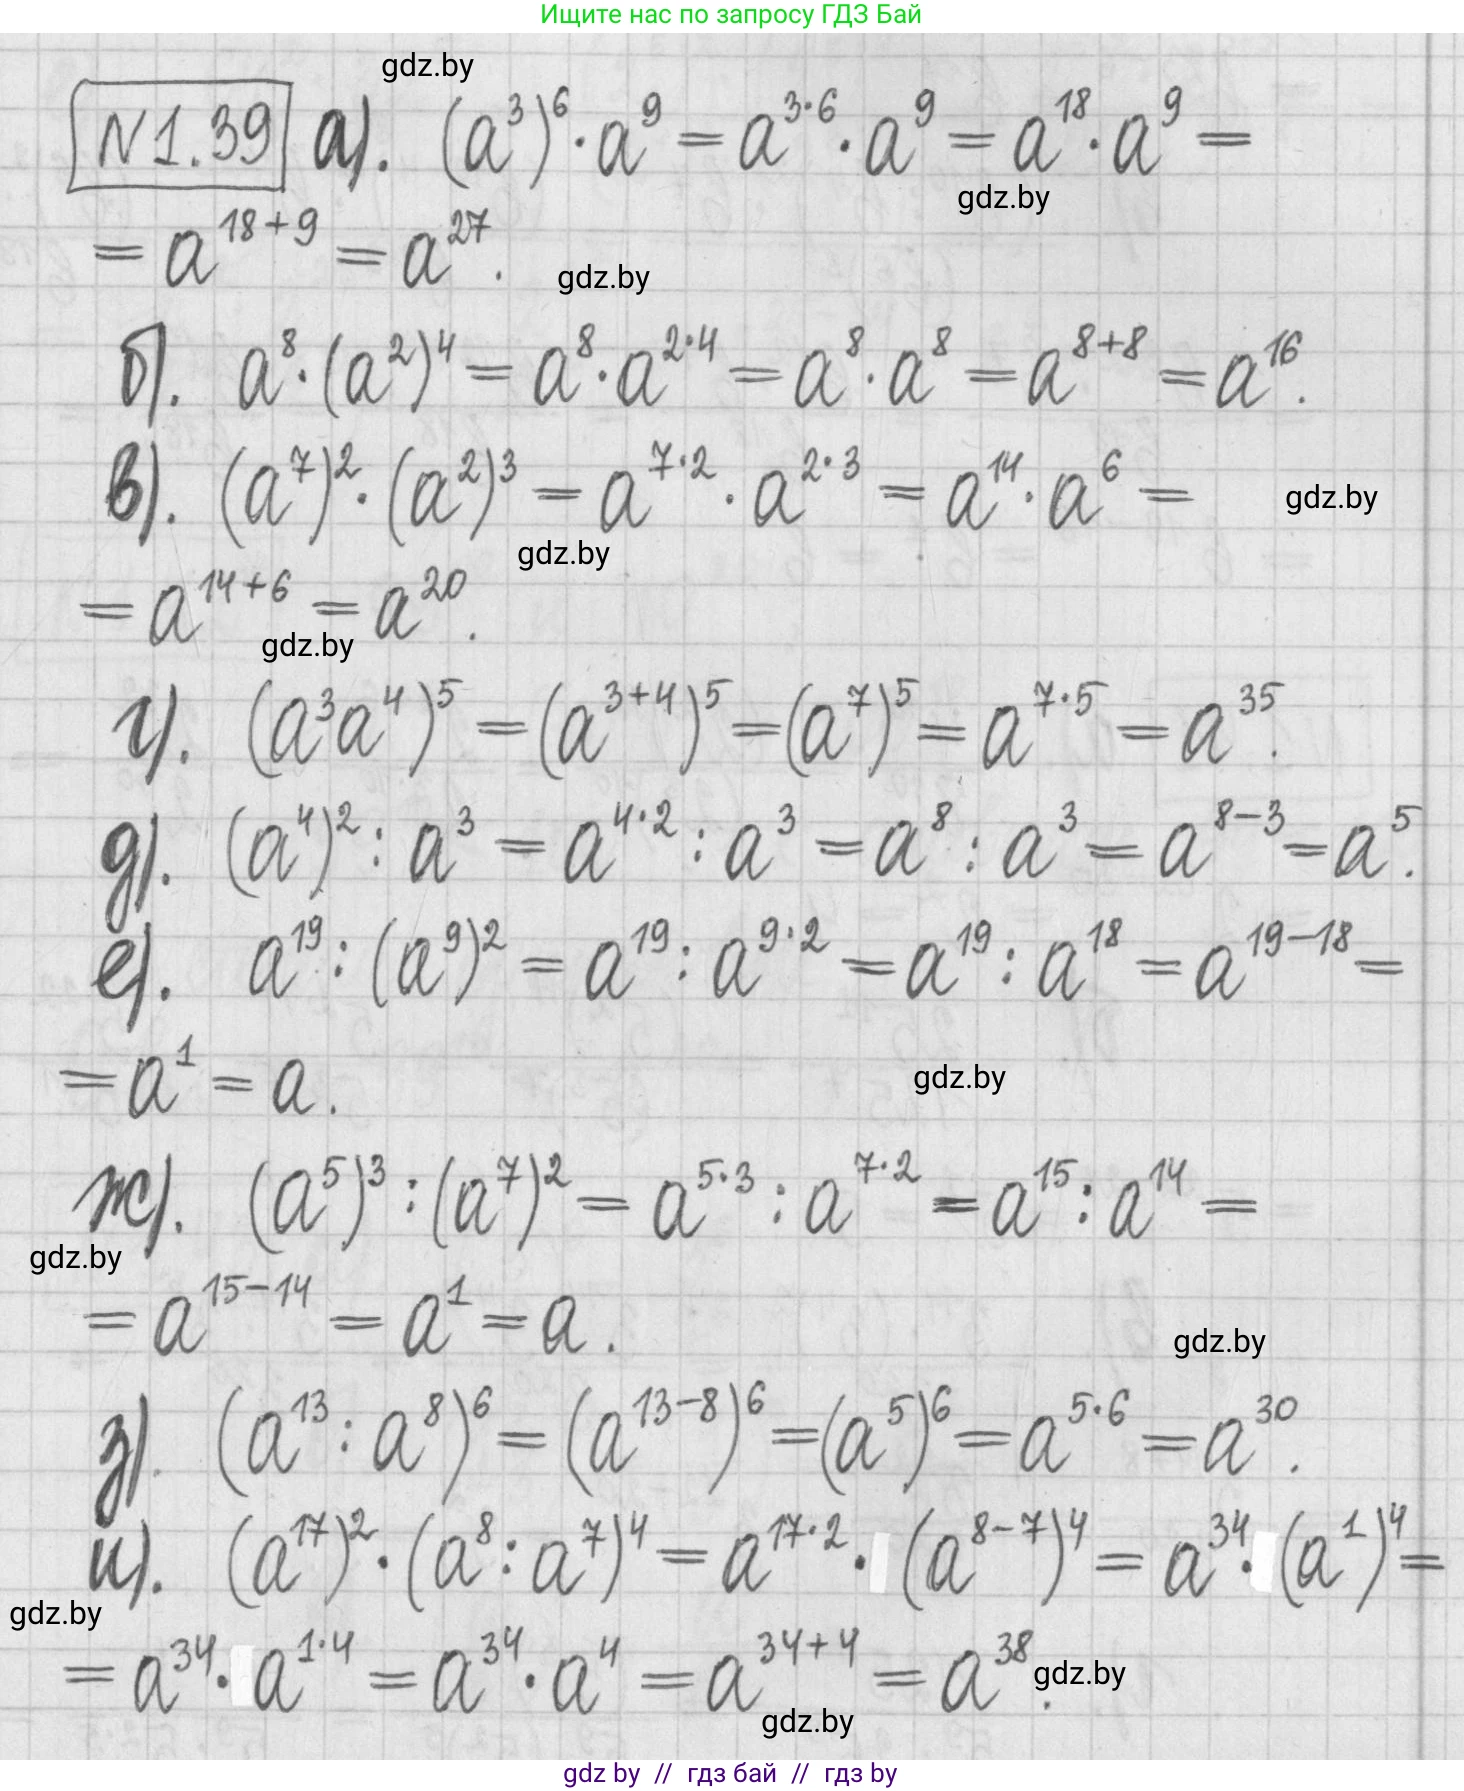 Ищите нас по запросу ГДЗ Бай
gdz.by
N1.39 а). (a³)⁶·a⁹ = a³·⁶·a⁹ = a¹⁸·a⁹ =
gdz.by
= a¹⁸⁺⁹ = a²⁷.
gdz.by
б). a⁸·(a²)⁴ = a⁸·a²·⁴ = a⁸·a⁸ = a⁸⁺⁸ = a¹⁶.
в). (a⁷)²·(a²)³ = a⁷·²·a²·³ = a¹⁴·a⁶ =
gdz.by
gdz.by
= a¹⁴⁺⁶ = a²⁰.
gdz.by
г). (a³a⁴)⁵ = (a³⁺⁴)⁵ = (a⁷)⁵ = a⁷·⁵ = a³⁵.
д). (a⁴)² : a³ = a⁴·² : a³ = a⁸ : a³ = a⁸⁻³ = a⁵.
е). a¹⁹ : (a⁹)² = a¹⁹ : a⁹·² = a¹⁹ : a¹⁸ = a¹⁹⁻¹⁸ =
= a¹ = a.
gdz.by
ж). (a⁵)³ : (a⁷)² = a⁵·³ : a⁷·² = a¹⁵ : a¹⁴ =
gdz.by
= a¹⁵⁻¹⁴ = a¹ = a.
gdz.by
з). (a¹³ : a⁸)⁶ = (a¹³⁻⁸)⁶ = (a⁵)⁶ = a⁵·⁶ = a³⁰.
и). (a¹⁷)²·(a⁸ : a⁷)⁴ = a¹⁷·²·(a⁸⁻⁷)⁴ = a³⁴·(a¹)⁴ =
gdz.by
= a³⁴·a¹·⁴ = a³⁴·a⁴ = a³⁴⁺⁴ = a³⁸.
gdz.by
gdz.by
gdz by // гдз бай // гдз by